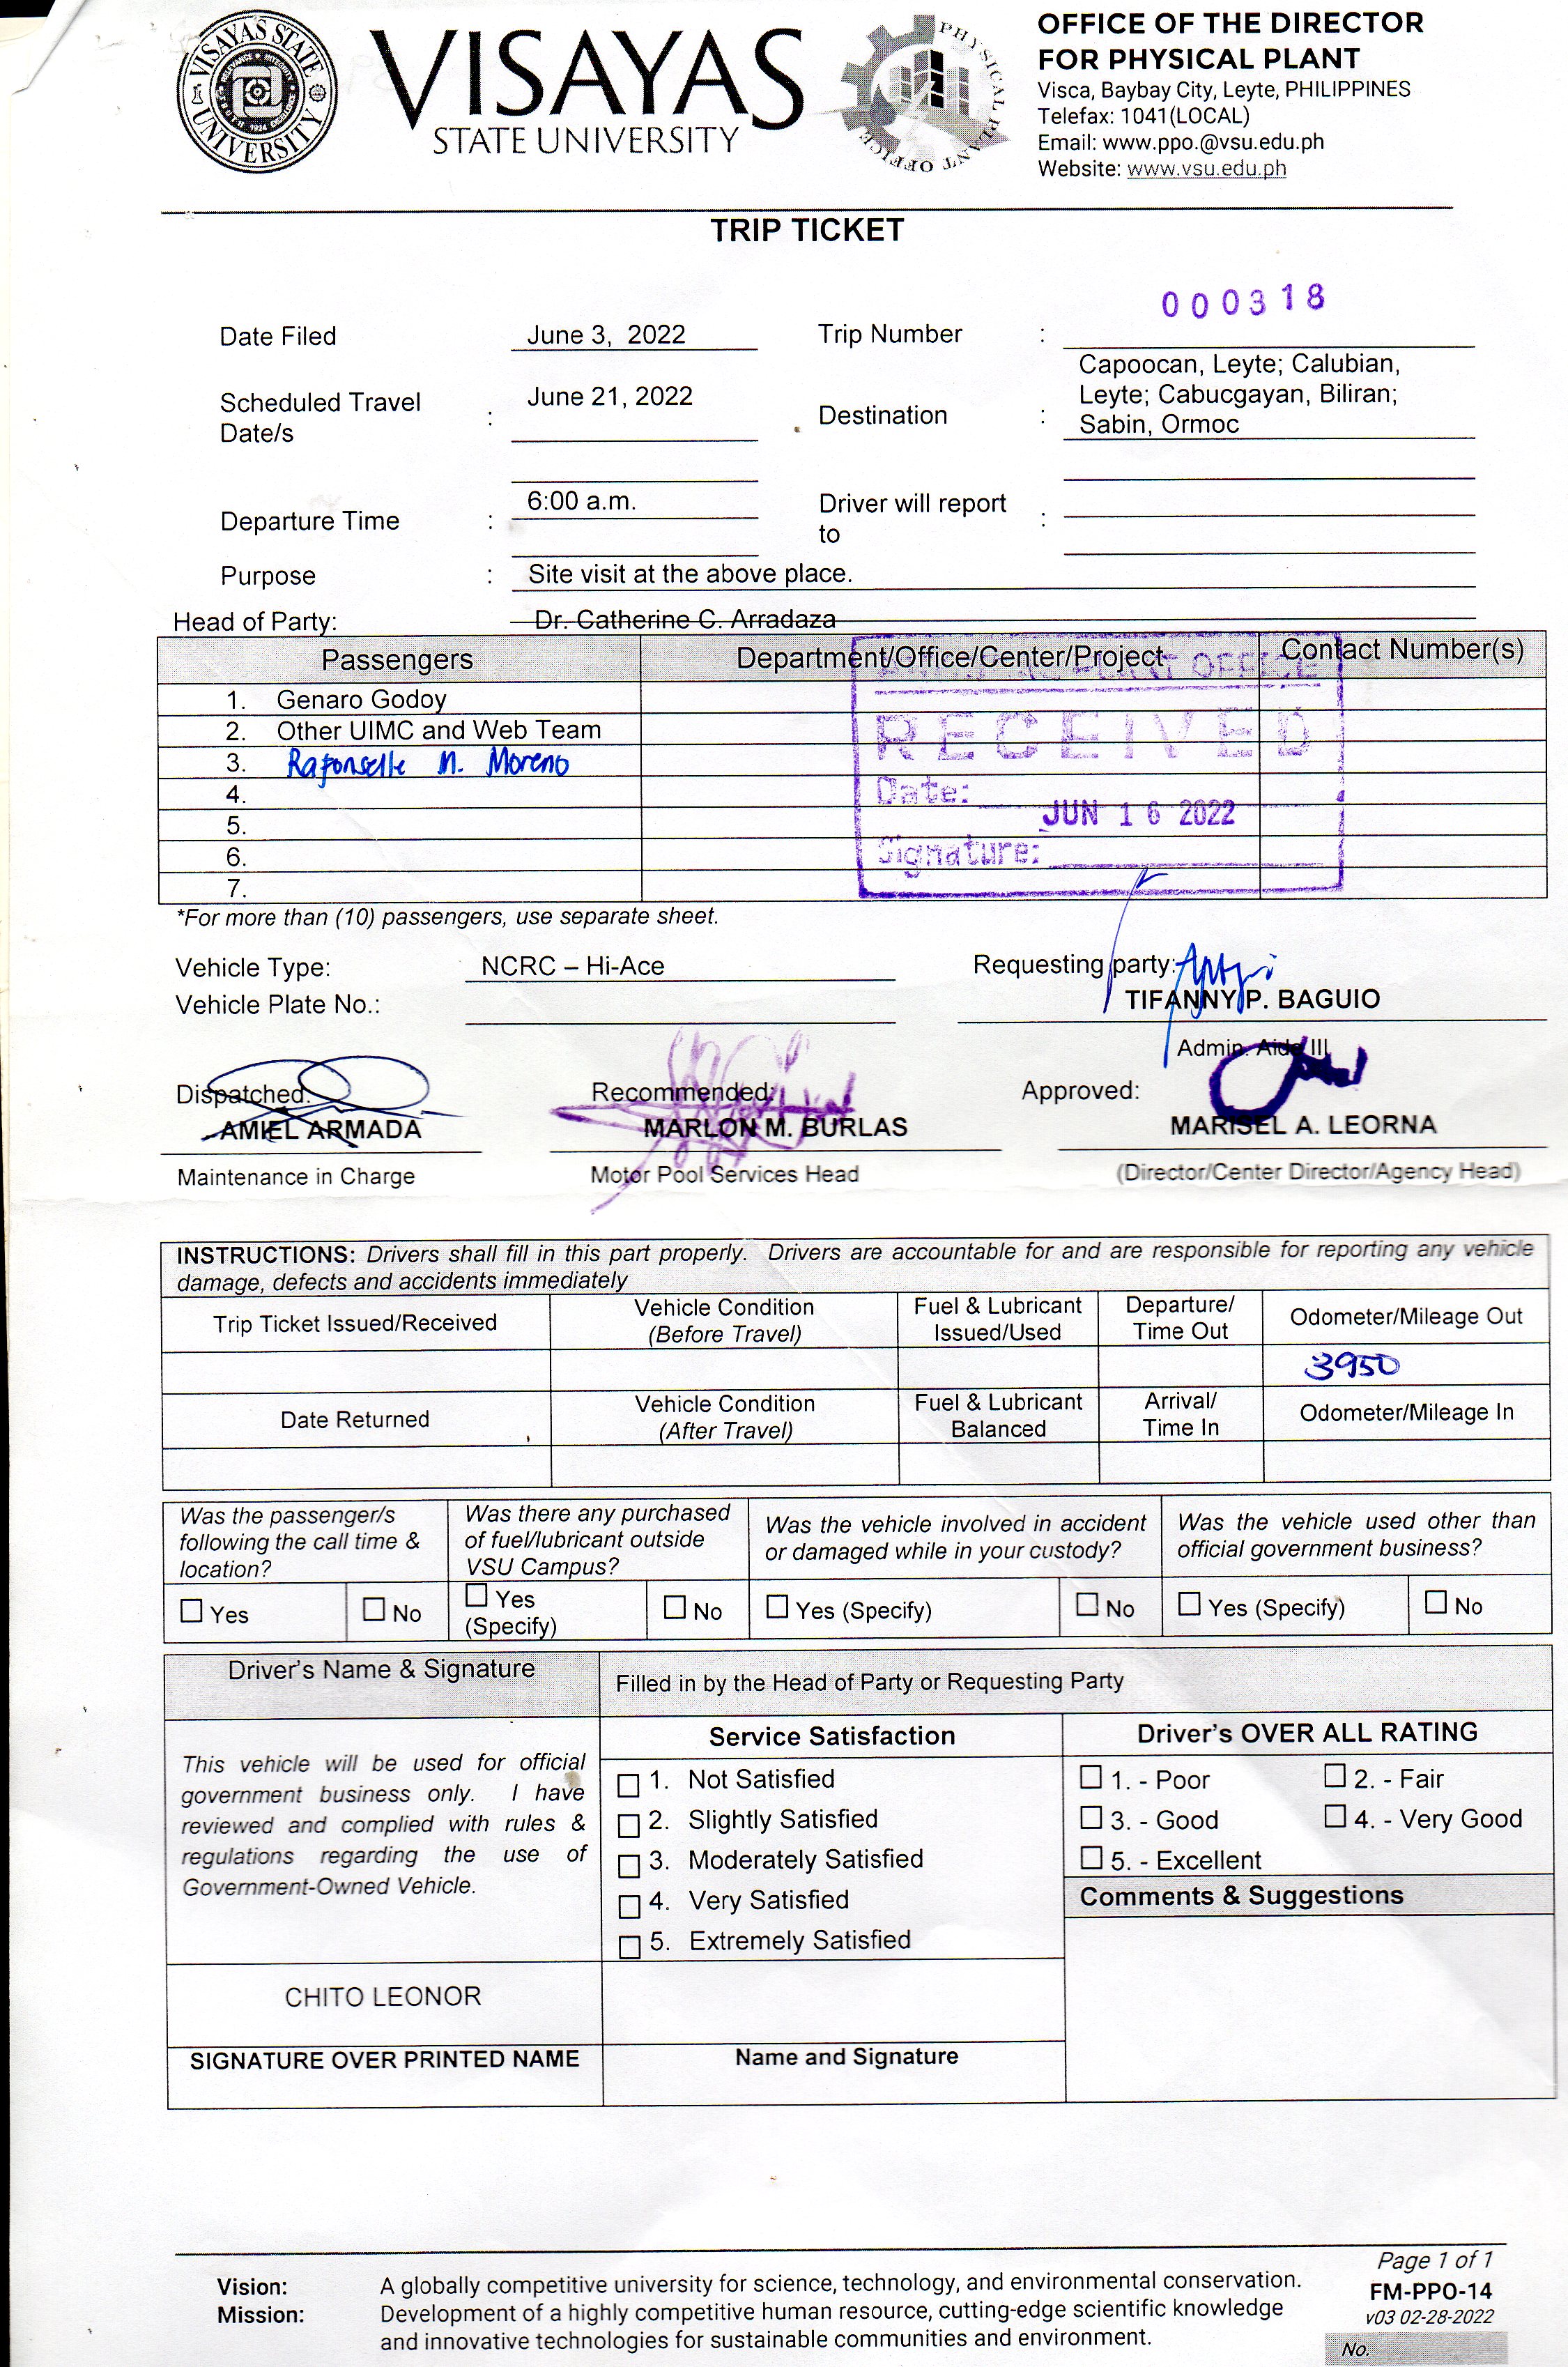 VISAYAS STATE UNIVERSITY
1924
VISAYAS
STATE UNIVERSITY
PHYSICAL PLANT OFFICE
OFFICE OF THE DIRECTOR
FOR PHYSICAL PLANT
Visca, Baybay City, Leyte, PHILIPPINES
Telefax: 1041(LOCAL)
Email: www.ppo.@vsu.edu.ph
Website: www.vsu.edu.ph
TRIP TICKET
000318
Date Filed June 3, 2022 Trip Number :
Scheduled Travel Date/s : June 21, 2022 Destination : Capoocan, Leyte; Calubian,
Leyte; Cabucgayan, Biliran;
Sabin, Ormoc
Departure Time : 6:00 a.m. Driver will report to :
Purpose : Site visit at the above place.
Head of Party: Dr. Catherine C. Arradaza
Passengers Department/Office/Center/Project Contact Number(s)
1. Genaro Godoy
2. Other UIMC and Web Team
3. Rafonselle M. Moreno
4.
5.
6.
7.
PHYSICAL PLANT OFFICE
RECEIVED
Date: JUN 16 2022
Signature:
*For more than (10) passengers, use separate sheet.
Vehicle Type: NCRC – Hi-Ace Requesting party:
Vehicle Plate No.: TIFANNY P. BAGUIO
Admin. Aide III
Dispatched: Recommended: Approved:
AMIEL ARMADA MARLON M. BURLAS MARISEL A. LEORNA
Maintenance in Charge Motor Pool Services Head (Director/Center Director/Agency Head)
INSTRUCTIONS: Drivers shall fill in this part properly. Drivers are accountable for and are responsible for reporting any vehicle
damage, defects and accidents immediately
Trip Ticket Issued/Received Vehicle Condition (Before Travel) Fuel & Lubricant Issued/Used Departure/ Time Out Odometer/Mileage Out
3950
Date Returned Vehicle Condition (After Travel) Fuel & Lubricant Balanced Arrival/ Time In Odometer/Mileage In
Was the passenger/s following the call time & location?
Yes No
Was there any purchased of fuel/lubricant outside VSU Campus?
Yes (Specify) No
Was the vehicle involved in accident or damaged while in your custody?
Yes (Specify) No
Was the vehicle used other than official government business?
Yes (Specify) No
Driver's Name & Signature Filled in by the Head of Party or Requesting Party
This vehicle will be used for official
government business only. I have
reviewed and complied with rules &
regulations regarding the use of
Government-Owned Vehicle.
CHITO LEONOR
SIGNATURE OVER PRINTED NAME
Service Satisfaction
1. Not Satisfied
2. Slightly Satisfied
3. Moderately Satisfied
4. Very Satisfied
5. Extremely Satisfied
Name and Signature
Driver's OVER ALL RATING
1. - Poor 2. - Fair
3. - Good 4. - Very Good
5. - Excellent
Comments & Suggestions
Page 1 of 1
FM-PPO-14
v03 02-28-2022
No.
Vision: A globally competitive university for science, technology, and environmental conservation.
Mission: Development of a highly competitive human resource, cutting-edge scientific knowledge
and innovative technologies for sustainable communities and environment.